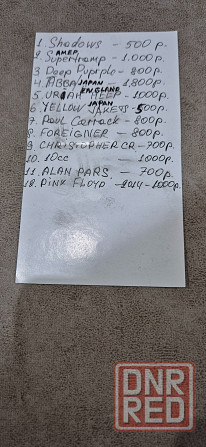 1. Shadows - 500р.
2. Supertramp AMER. - 1.000р.
3 Deep Purple - 800р.
4 ABBA JAPAN - 1,800р.
5. URIAH HEEP ENGLAND - 1000р.
6 YELLOW JAKETS JAPAN - 500р.
7. Paul Carrack - 800р.
8. FOREIGNER - 800р.
9 CHRISTOPHER CR. - 700р.
10. 10cc 1000р.
11. ALAN PARS. - 700р.
12. PINK FLOYD - 2014 - 1000р.
DNR
RED